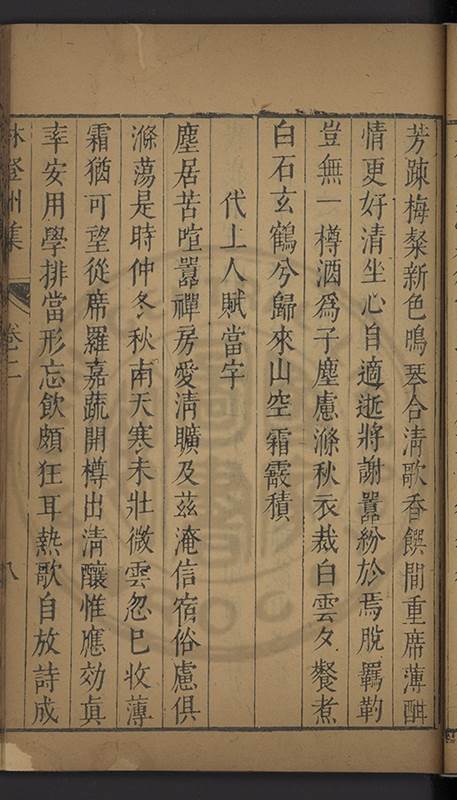 芳疎梅粲新色鳴琴合清歌香饌間重席薄酣
情更好清坐心自適逝將謝囂紛於焉脫羈靮
豈無一樽酒爲子塵慮滌秋衣裁白雲夕餐煮
白石玄鶴兮歸來山空霜霰積
代上人賦當字
塵居苦喧囂禪房愛淸曠及兹淹信宿俗慮俱
滌蕩是時仲冬秋南天寒未壯微雲忽巳收薄
霜猶可望從席羅嘉蔬開樽出清釀惟應効眞
率安用學排當形忘飲頗狂耳熱歌自放詩成
林登州集 卷二 八